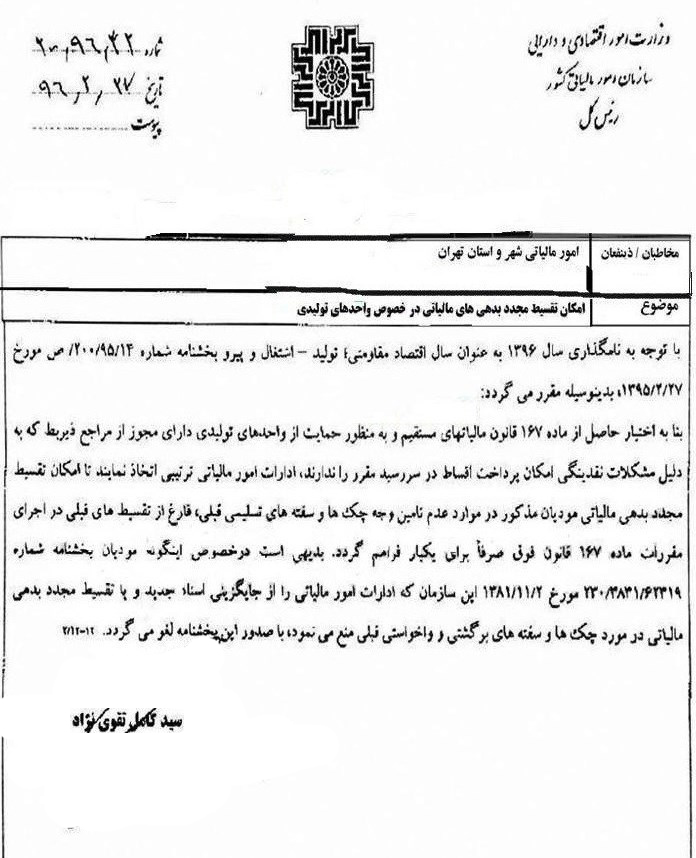 وزارت امور اقتصادی و دارایی
سازمان امور مالیاتی کشور
رئیس کل
شماره ۲۰۰,۹۶,۴۲
تاریخ ۹۶,۲,۲۷
پیوست
مخاطبان / ذینفعان
امور مالیاتی شهر و استان تهران
موضوع
امکان تقسیط مجدد بدهی های مالیاتی در خصوص واحدهای تولیدی
با توجه به نامگذاری سال ۱۳۹۶ به عنوان سال اقتصاد مقاومتی؛ تولید – اشتغال و پیرو بخشنامه شماره ۲۰۰/۹۵/۱۴/ ص مورخ
۱۳۹۵/۲/۲۷، بدینوسیله مقرر می گردد:
بنا به اختیار حاصل از ماده ۱۶۷ قانون مالیاتهای مستقیم و به منظور حمایت از واحدهای تولیدی دارای مجوز از مراجع ذیربط که به
دلیل مشکلات نقدینگی امکان پرداخت اقساط در سررسید مقرر را ندارند، ادارات امور مالیاتی ترتیبی اتخاذ نمایند تا امکان تقسیط
مجدد بدهی مالیاتی مودیان مذکور در موارد عدم تامین وجه چک ها و سفته های تسلیمی قبلی، فارغ از تقسیط های قبلی در اجرای
مقررات ماده ۱۶۷ قانون فوق صرفاً برای یکبار فراهم گردد. بدیهی است درخصوص اینگونه مودیان بخشنامه شماره
۲۳۰/۳۸۳۱/۶۲۳۱۹ مورخ ۱۳۸۱/۱۱/۲ این سازمان که ادارات امور مالیاتی را از جایگزینی اسناد جدید و یا تقسیط مجدد بدهی
مالیاتی در مورد چک ها و سفته های برگشتی و واخواستی قبلی منع می نمود، با صدور این بخشنامه لغو می گردد. ۲/۱۲-۱۲
سید کامل تقوی نژاد